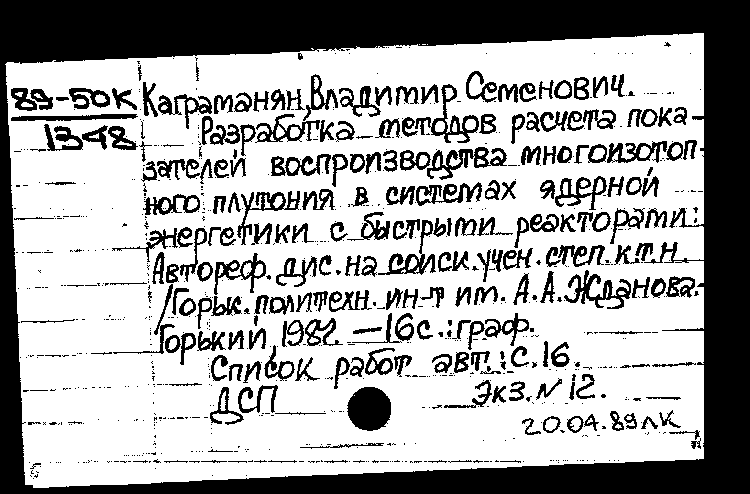 89-50К Каграманян, Владимир Семенович.
1348 Разработка методов расчета пока-
зателей воспроизводства многоизотоп-
ного плутония в системах ядерной
энергетики с быстрыми реакторами:
Автореф. дис. на соиск. учен. степ. к.т.н.
/Горьк. политехн. ин-т им. А.А.Жданова.-
Горький, 1982. —16с.:граф.
Список работ авт.: с. 16.
ДСП Экз. N 12.
20.04.89 ЛК